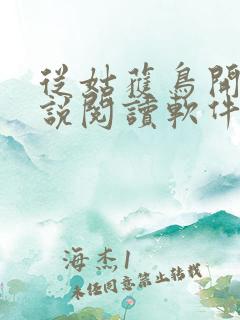 從姑蘇鳥開
說閱讀軟件
海杰1
未任同意禁止转载